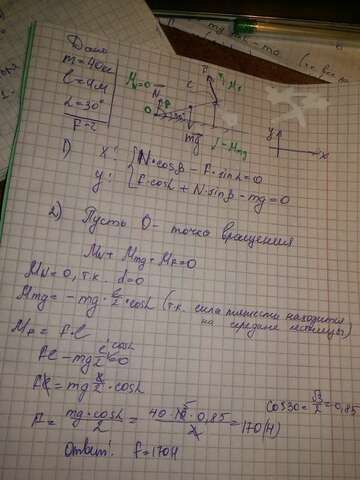 Дано
m=40кг
l=4м
α=30°
F-?
M_N=0
N
O
β
c
F
mg
-M_mg
y
x
1) x: { N·cosβ - F·sinα=0
y: { F·cosα + N·sinβ - mg=0
2) Пусть O - точка вращения
M_N + M_mg + M_F = 0
M_N = 0, т.к. d=0
M_mg = -mg·l/2·cosα (т.к. сила тяжести находится
на середине лестницы)
M_F = F·l
Fl - mg l/2 cosα =0
Fl = mg l/2 · cosα
F = mg·cosα/2 = 40·10·0,85/2 = 170(Н)
cos30=√3/2=0,85
Ответ: F=170Н